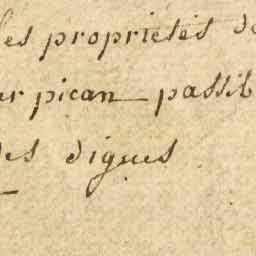 les propriétés de
ur pican passib
des digues